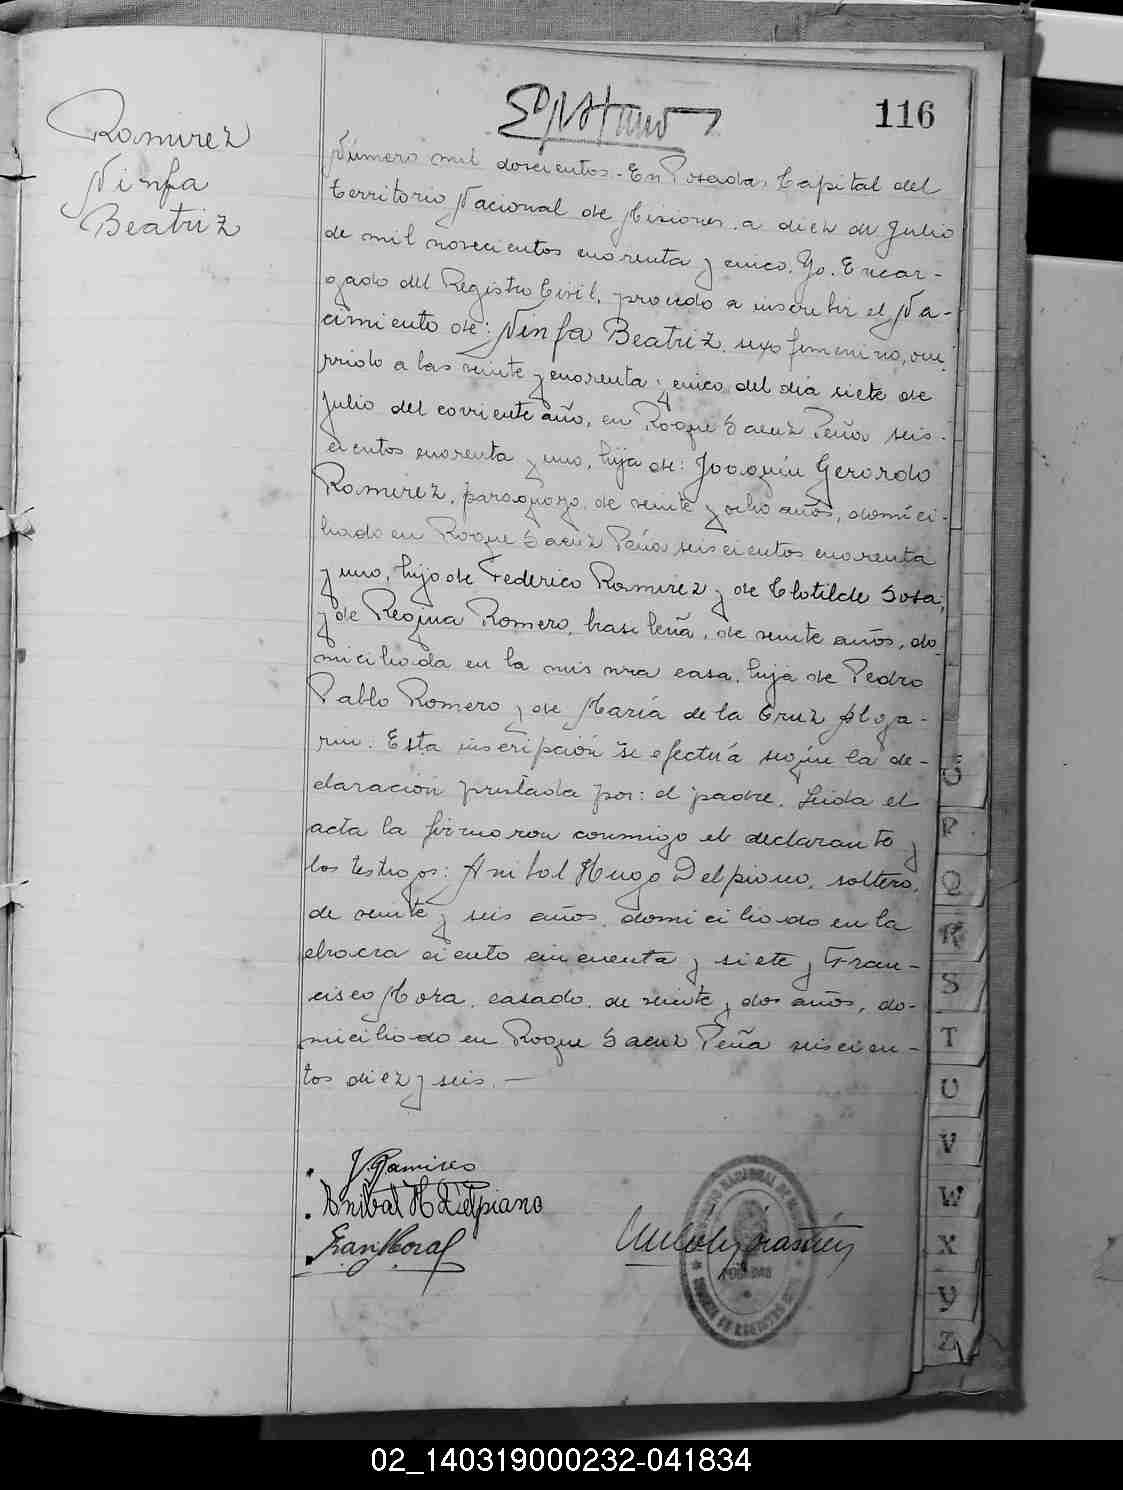 116
Ramirez
Ninfa
Beatriz
Número mil doscientos.- En Posadas, Capital del
territorio Nacional de Misiones, a diez de Julio
de mil novecientos cuarenta y cinco. Yo. Encar-
gado del Registro Civil, procedo a inscribir el Na-
cimiento de: Ninfa Beatriz, sexo femenino, ocu-
rrido a las veinte y cuarenta y cinco del día siete de
julio del corriente año, en Roque Saenz Peña seis-
cientos cuarenta y uno, hija de: Joaquín Gerardo
Ramirez, paraguayo, de veinte y ocho años, domici-
liado en Roque Saenz Peña seiscientos cuarenta
y uno, hijo de Federico Ramirez y de Clotilde Sosa;
y de Regina Romero, brasileña, de veinte años, do-
miciliada en la misma casa, hija de Pedro
Pablo Romero y de María de la Cruz
Esta inscripción se efectúa según la de-
claración prestada por: el padre. Leida el
acta la firmaron conmigo el declarante y
los testigos: Anibal Hugo Delpiano, soltero,
de veinte y seis años, domiciliado en la
chacra ciento cincuenta y siete y Fran-
cisco Mora, casado, de veinte y dos años, do-
miciliado en Roque Saenz Peña seiscien-
tos diez y seis.-
J. Ramirez
Anibal H Delpiano
Fran Mora
POSADAS
O
P
Q
R
S
T
U
V
W
X
Y
Z
02_140319000232-041834